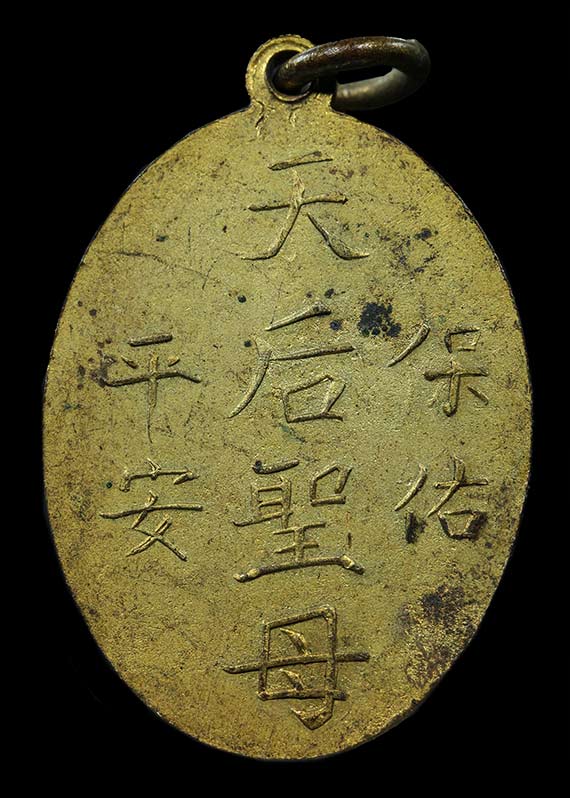 保佑
天后聖母
平安